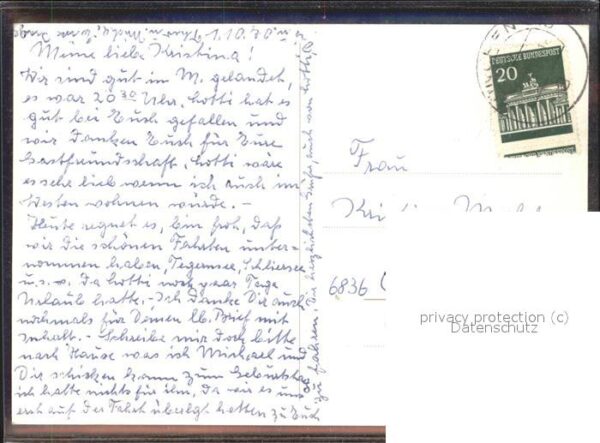 1.10.70
Meine liebe Kristina!
Wir sind gut in M. gelandet,
es war 20 30 Uhr, Lotti hat es
gut bei Euch gefallen und
wir Danken Euch für Eure
Gastfreundschaft. Lotti wäre
es sehr lieb wenn ich auch im
Westen wohnen würde. -
Heute regnet es, bin froh, daß
wir die schönen Fahrten unter-
nommen haben, Tegernsee, Schliersee
u.s.w. Da Lotti noch paar Tage
Urlaub hatte. - Ich Danke Dir auch
nochmals für Deinen lb. Brief mit
Inhalt. - Schreibe mir doch bitte
nach Hause was ich Michael und
Dir schicken kann zum Geburtstag
ich hatte nichts für ihn, da wir es uns
erst auf der Fahrt überlegt hatten zu Euch
zu fahren. Die herzlichsten Grüße auch von Lotti
Frau
6836
DEUTSCHE BUNDESPOST
20
privacy protection (c)
Datenschutz